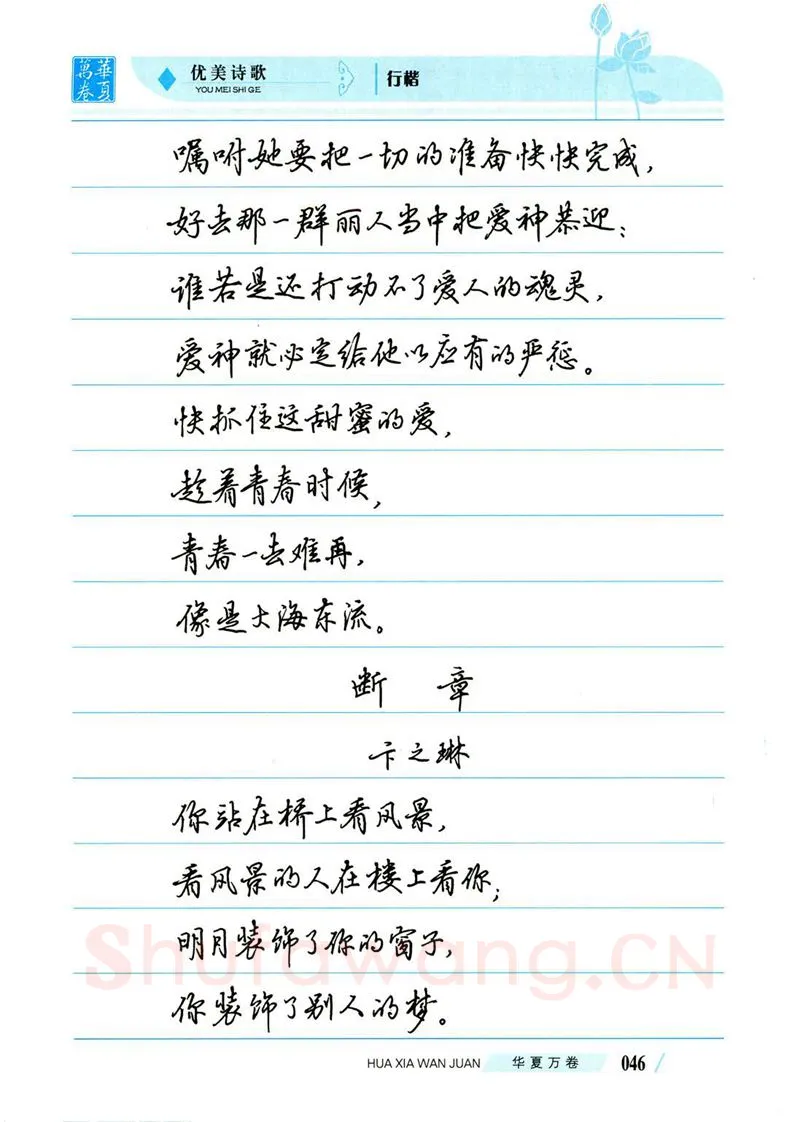 華夏萬卷
优美诗歌
YOU MEI SHI GE
行楷
嘱咐她要把一切的准备快快完成，
好去那一群丽人当中把爱神恭迎；
谁若是还打动不了爱人的魂灵，
爱神就必定给他以应有的严惩。
快抓住这甜蜜的爱，
趁着青春时候，
青春一去难再，
像是大海东流。
断 章
卞之琳
你站在桥上看风景，
看风景的人在楼上看你；
明月装饰了你的窗子，
你装饰了别人的梦。
Shufawang.CN
HUA XIA WAN JUAN
华夏万卷
046